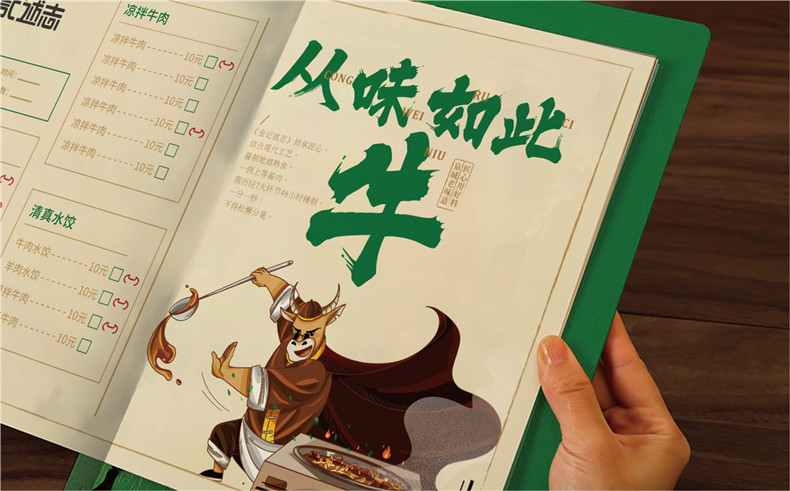 记诚志
时间：
凉拌牛肉
凉拌牛肉 10元
凉拌牛肉 10元
凉拌牛肉 10元
凉拌牛肉 10元
凉拌牛肉 10元
凉拌牛肉 10元
清真水饺
牛肉水饺 10元
羊肉水饺 10元
凉拌牛肉 10元
牛肉 10元
从味如此
CONG WEI RU CI
牛
NIU
《金记诚志》师承匠心，
结合现代工艺，
酱制地道熟食。
一到上等酱肉，
需历经7大环节48小时腌制，
一分一秒，
不得松懈分毫。
匠心用好料
泉城老味道